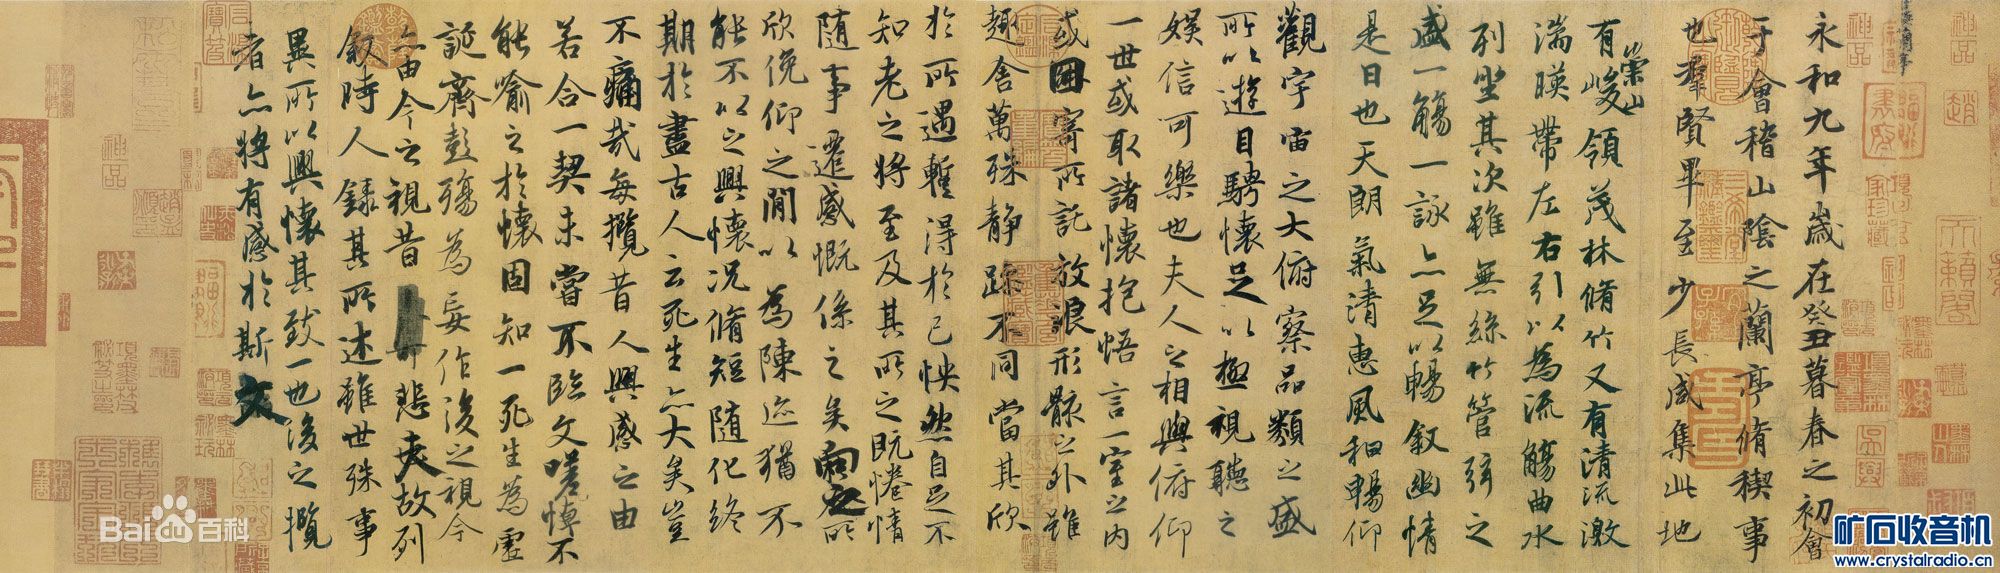 永和九年歲在癸丑暮春之初會
于會稽山陰之蘭亭脩稧事
也羣賢畢至少長咸集此地
有崇山峻領茂林脩竹又有清流激
湍暎帶左右引以為流觴曲水
列坐其次雖無絲竹管弦之
盛一觴一詠亦足以暢敘幽情
是日也天朗氣清惠風和暢仰
觀宇宙之大俯察品類之盛
所以遊目騁懷足以極視聽之
娛信可樂也夫人之相與俯仰
一世或取諸懷抱悟言一室之內
或因寄所託放浪形骸之外雖
趣舍萬殊靜躁不同當其欣
於所遇暫得於己怏然自足不
知老之將至及其所之既惓情
隨事遷感慨係之矣向之所
欣俛仰之閒以為陳迹猶不
能不以之興懷況脩短隨化終
期於盡古人云死生亦大矣豈
不痛哉每攬昔人興感之由
若合一契未嘗不臨文嗟悼不
能喻之於懷固知一死生為虛
誕齊彭殤為妄作後之視今
亦由今之視昔悲夫故列
敘時人錄其所述雖世殊事
異所以興懷其致一也後之攬
者亦將有感於斯文
Bai百科
矿石收音机
www.crystalradio.cn
神品